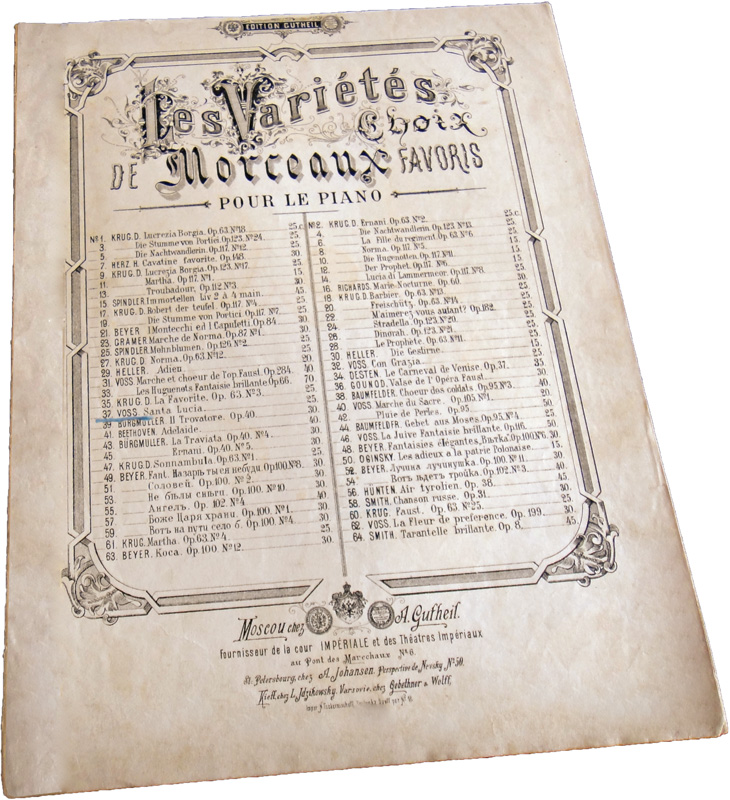 EDITION GUTHEIL
Les Variétés
Choix
DE Morceaux FAVORIS
POUR LE PIANO
№1. KRUG. D. Lucrezia Borgia. Op. 63. №18. 25.c.
3. Die Stumme von Portici. Op. 123. №24. 25.
5. Die Nachtwandlerin. Op. 117. №12. 25.
7. HERZ. H. Cavatine favorite. Op. 148. 30.
9. KRUG. D. Lucrezia Borgia. Op. 123. №17. 25.
11. Martha. Op. 117. №1. 15.
13. Troubadour. Op. 112 №3. 30.
15. SPINDLER. Immortellen Liv 2 à 4 main. 45.
17. KRUG. D. Robert der teufel. Op. 117. №4. 25.
19. Die Stumme von Portici. Op. 117. №7. 25.
21. BEYER I Montecchi ed I Capuletti Op. 84 30.
23. GRAMER. Marche de Norma. Op. 87 №1. 30.
25. SPINDLER. Mohnblumen. Op. 126 №2. 25.
27. KRUG. D. Norma. Op. 63. №12. 25.
29. HELLER. Adieu. 20.
31. VOSS. Marche et choeur de l'op. Faust. Op. 284. 40.
33. Les Huguenots Fantaisie brillante. Op. 66. 70.
35. KRUG. D. La Favorite. Op. 63. №3. 25.
37. VOSS. Santa Lucia. 50.
39. BURGMÜLLER. Il Trovatore. Op. 40. 30.
41. BEETHOVEN. Adelaide. 40.
43. BURGMÜLLER. La Traviata Op. 40. №4. 30.
45. Ernani. Op. 40. №5. 30.
47. KRUG. D. Sonnambula. Op. 63. №1. 25.
49. BEYER. Fant. Назаръ ты ей небуди. Op. 100. №8. 30.
51. Соловей. Op. 100. №2. 30.
53. Не бѣлы снѣги. Op. 100. №10. 30.
55. Ангелъ. Op. 102. №4 40.
57. Боже Царя храни. Op. 100. №1. 30.
59. Вотъ на пути село б. Op. 100. №4. 30.
61. KRUG. Martha. Op. 63. №4. 25.
63. BEYER. Коса. Op. 100. №12. 30.
№2. KRUG. D. Ernani. Op. 63. №2. 25.c.
4. Die Nachtwandlerin. Op. 123. №13. 25.
6. La Fille du regiment. Op. 63. №6 25.
8. Norma. Op. 117. №2. 15.
10. Die Hugenoten. Op. 117. №11. 25.
12. Der Prophet. Op. 117. №6. 15.
14. Lucia di Lammermoor. Op. 117. №8. 25.
16. RICHARDS. Marie-Nocturne. Op. 60. 30.
18. KRUG. D. Barbier. Op. 63. №13. 25.
20. Freischütz. Op. 63. №14. 25.
22. M'aimerez vous autant? Op. 162. 25.
24. Stradella. Op. 123. №20. 25.
26. Dinorah. Op. 123. №21. 25.
28. Le Prophète. Op. 63. №11. 25.
30. HELLER. Die Gestirne. 15.
32. VOSS. Con Grazia. 25.
34. DESTEN. Le Carneval de Venise. Op. 37. 35.
36. GOUNOD. Valse de l'Opéra Faust. 30.
38. BAUMFELDER. Choeur des coldats. Op. 95. №3. 40.
40. VOSS. Marche du Sacre. Op. 105. №1. 20.
42. Pluie de Perles. Op. 95. 40.
44. BAUMFELDER. Gebet aus Moses. Op. 95. №4. 25.
46. VOSS. La Juive Fantaisie brillante. Op. 116. 50.
48. BEYER. Fantaisies élégantes, Op. 100. №6. 30.
50. OGINSKY. Les adieux a la patrie Polonaise. 15.
52. BEYER. Лучина лучинушка. Op. 100. №11. 30.
54. Вотъ ѣдетъ тройка. Op. 102. №3. 40.
56. HUNTEN. Air tyrolien. Op. 38. 45.
58. SMITH. Chanson russe. Op. 31. 50.
60. KRUG. Faust. Op. 63. №25. 25.
62. VOSS. La Fleur de preference. Op. 199. 30.
64. SMITH. Tarantelle brillante. Op. 8. 45.
Moscou chez A. Gutheil.
Fournisseur de la cour IMPÉRIALE et des Théatres Impériaux
au Pont des Marechaux №6.
St. Petersbourg, chez A. Johansen. Perspective de Nevsky №50.
Kieff, chez L. Idzikowsky. Varsovie, chez Gebethner & Wolff.